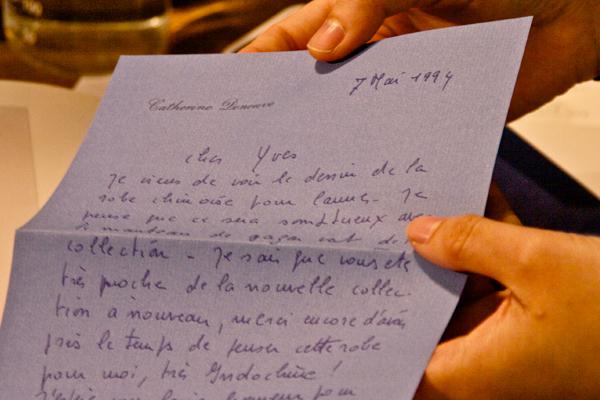 7 Mai 1994
Catherine Deneuve
cher Yves
Je viens de voir le dessin de la
robe chinoise pour Cannes - Je
pense que ce sera somptueux avec
manteau de
collection - Je sais que vous êtes
très proche de la nouvelle collec-
tion à nouveau, merci encore d'avoir
pris le temps de penser cette robe
pour moi, très Indochine !
J'espère pour